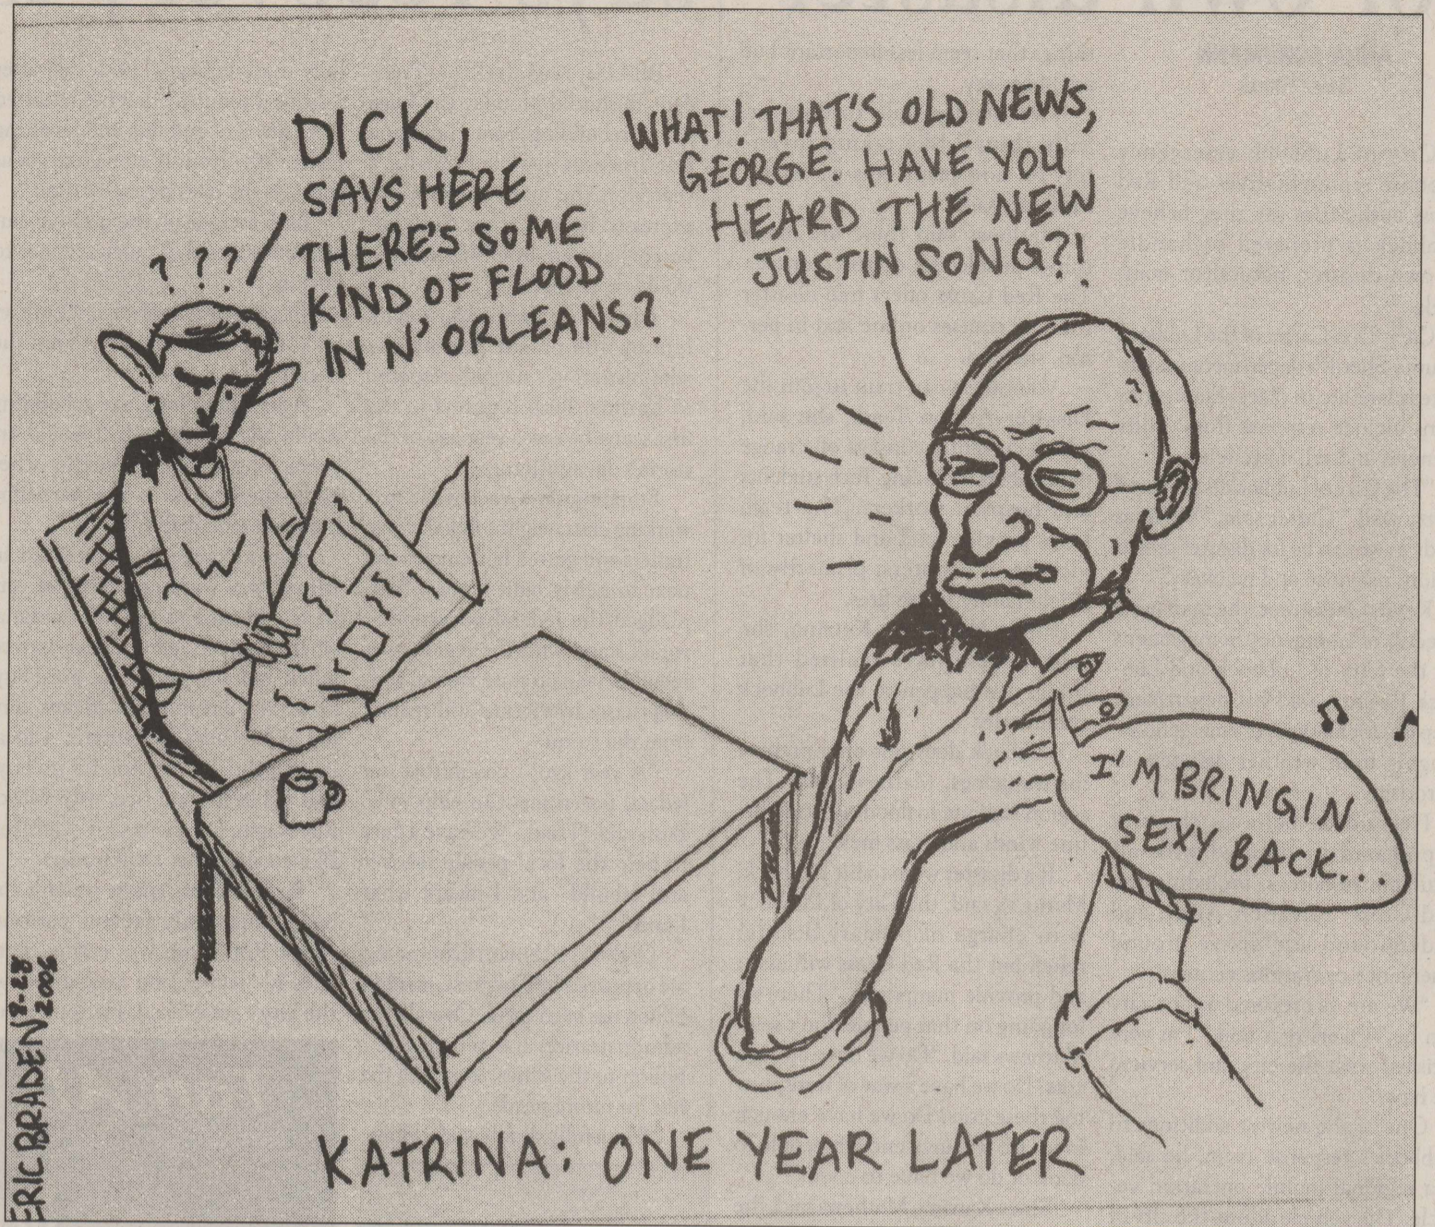 DICK,
SAYS HERE
THERE'S SOME
KIND OF FLOOD
IN N'ORLEANS?
? ? ?
WHAT! THAT'S OLD NEWS,
GEORGE. HAVE YOU
HEARD THE NEW
JUSTIN SONG?!
W
I'M BRINGIN
SEXY BACK...
ERIC BRADEN 8-28
2006
KATRINA: ONE YEAR LATER